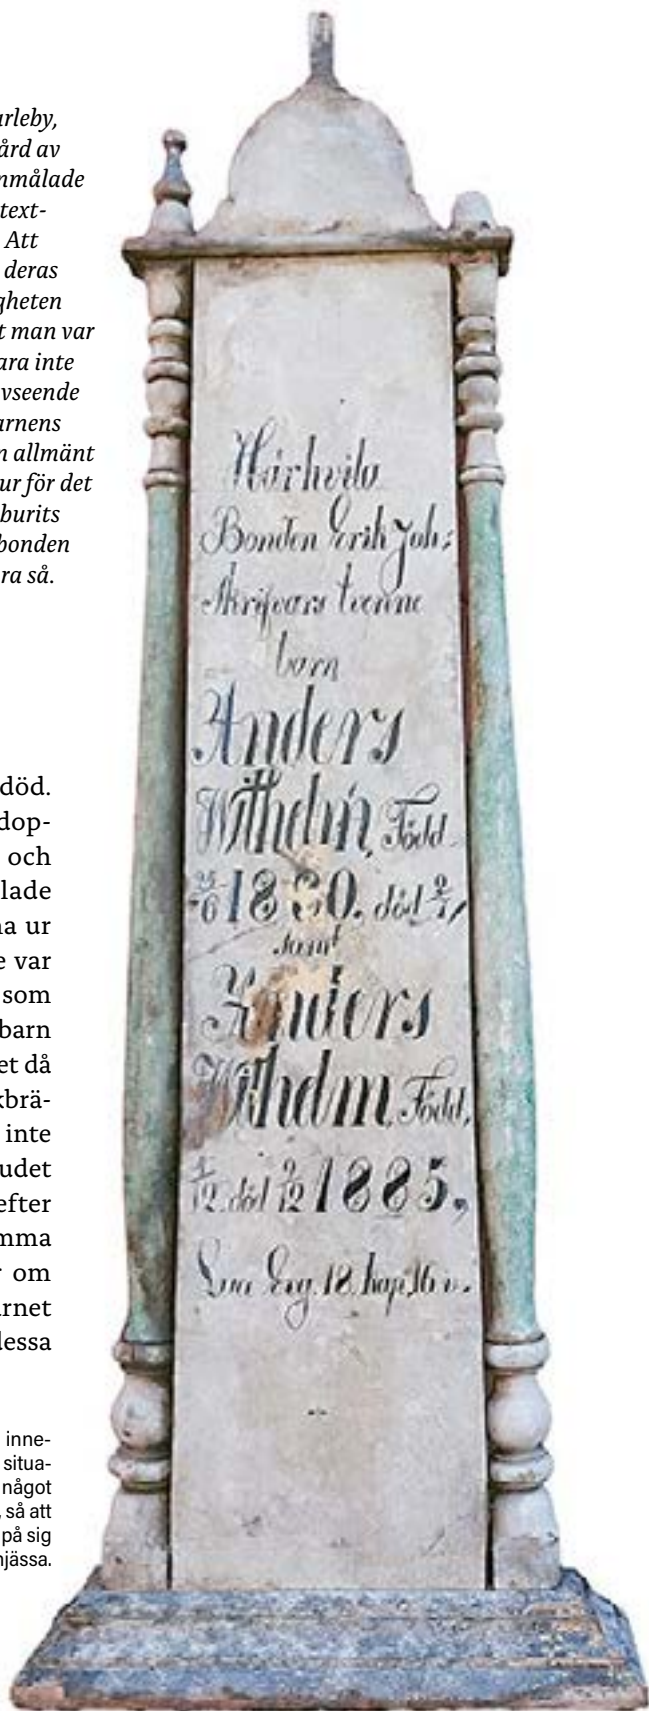 arleby,
ård av
nmålade
text-
Att
deras
gheten
t man var
ara inte
vseende
arnens
n allmänt
ur för det
burits
bonden
ra så.
död.
dop-
och
lade
na ur
e var
som
barn
et då
kbrä-
inte
udet
efter
mma
r om
arnet
dessa
inne-
situa-
något
, så att
på sig
njässa.
Här hvila
Bonden Erik Joh:
Skrifvars tvenne
barn
Anders
Wilhelm, Född
6 1880. död
samt
Anders
Wilhelm, Född,
1/12. död 2/12 1885.
Luc Evg. 18. kap. 16 v.